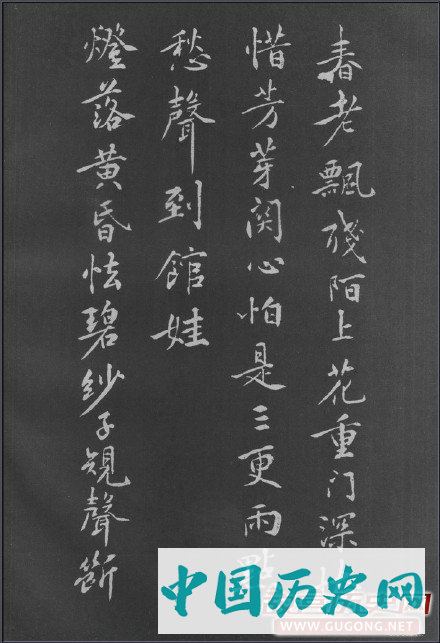 春老飄殘陌上花重门深
惜芳芽関心怕是三更雨點
愁聲到館娃
燈落黄昏怯碧纱子規聲斷
中国历史网
WWW.GUGONG.NET